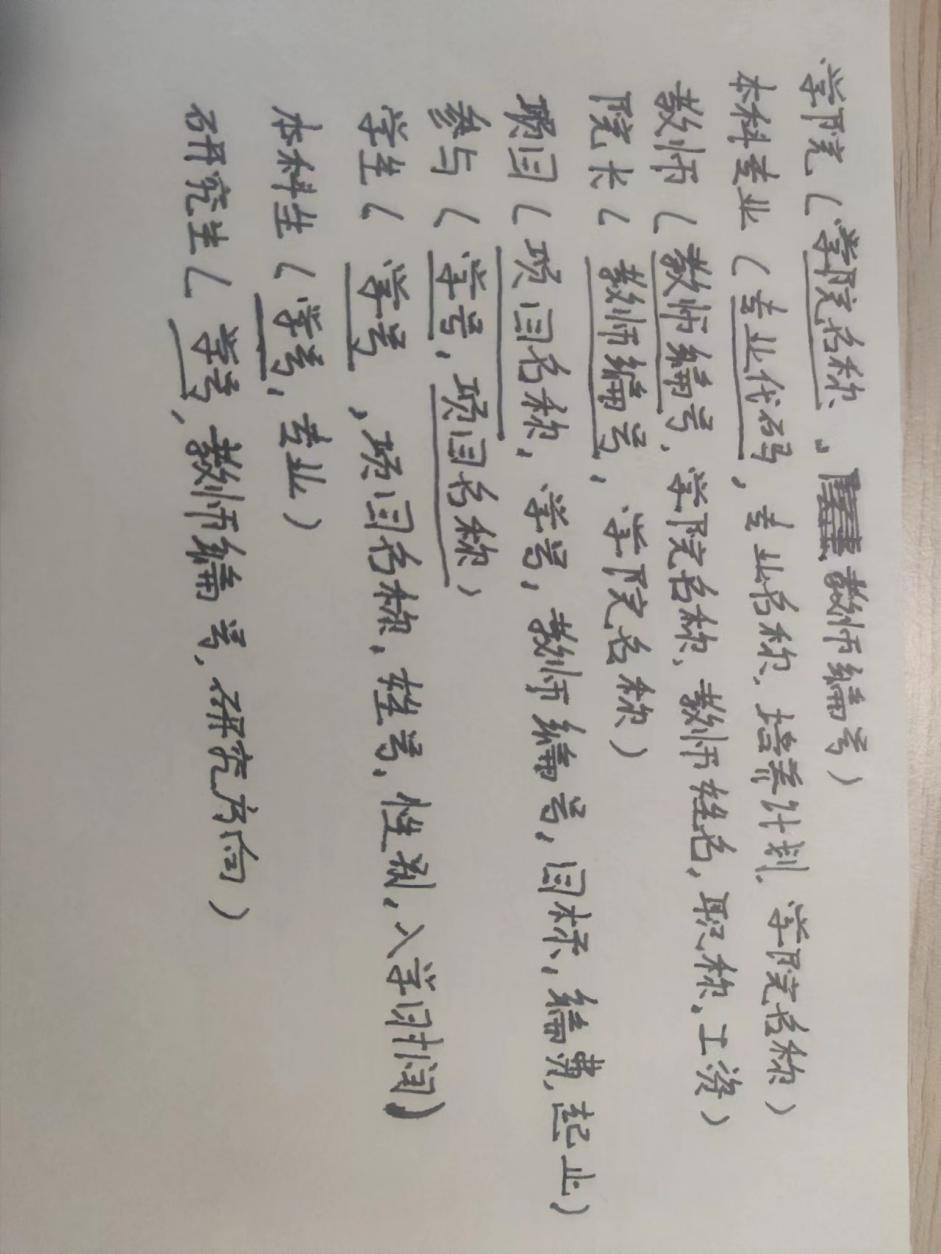 学院（学院名称，教师编号）
本科专业（专业代码，专业名称，培养计划，学院名称）
教师（教师编号，学院名称，教师姓名，职称，工资）
院长（教师编号，学院名称）
项目（项目名称，学号，教师编号，目标，编费，起止）
参与（学号，项目名称）
学生（学号，项目名称，姓名，性别，入学时间）
本科生（学号，专业）
研究生（学号，教师编号，研究方向）